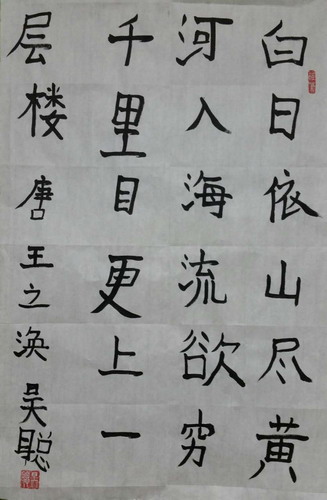 白日依山尽黄
河入海流欲穷
千里目更上一
层楼唐王之涣吴聪